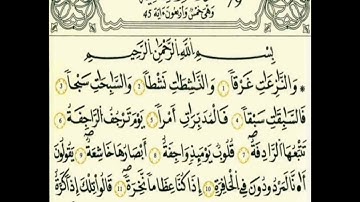 وَهِيَ خَمْسٌ وَأَرْبَعُونَ اٰيَةً 45
79
بِسْمِ اللّٰهِ الرَّحْمٰنِ الرَّحِيمِ
وَالنَّازِعَاتِ غَرْقًا ۝١ وَالنَّاشِطَاتِ نَشْطًا ۝٢ وَالسَّابِحَاتِ سَبْحًا ۝٣
فَالسَّابِقَاتِ سَبْقًا ۝٤ فَالْمُدَبِّرَاتِ أَمْرًا ۝٥ يَوْمَ تَرْجُفُ الرَّاجِفَةُ ۝٦
تَتْبَعُهَا الرَّادِفَةُ ۝٧ قُلُوبٌ يَوْمَئِذٍ وَاجِفَةٌ ۝٨ أَبْصَارُهَا خَاشِعَةٌ ۝٩ يَقُولُونَ
أَءِنَّا لَمَرْدُودُونَ فِي الْحَافِرَةِ ۝١٠ أَءِذَا كُنَّا عِظَامًا نَخِرَةً ۝١١ قَالُوا تِلْكَ إِذًا كَرَّةٌ